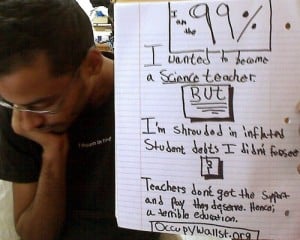 I
am
the
99%
I wanted to become
a Science teacher.
BUT
I'm shrouded in inflated
Student debts I didn't foresee
&
Teachers don't get the support
and pay they deserve. Hence;
a terrible education.
OccupyWallSt.org